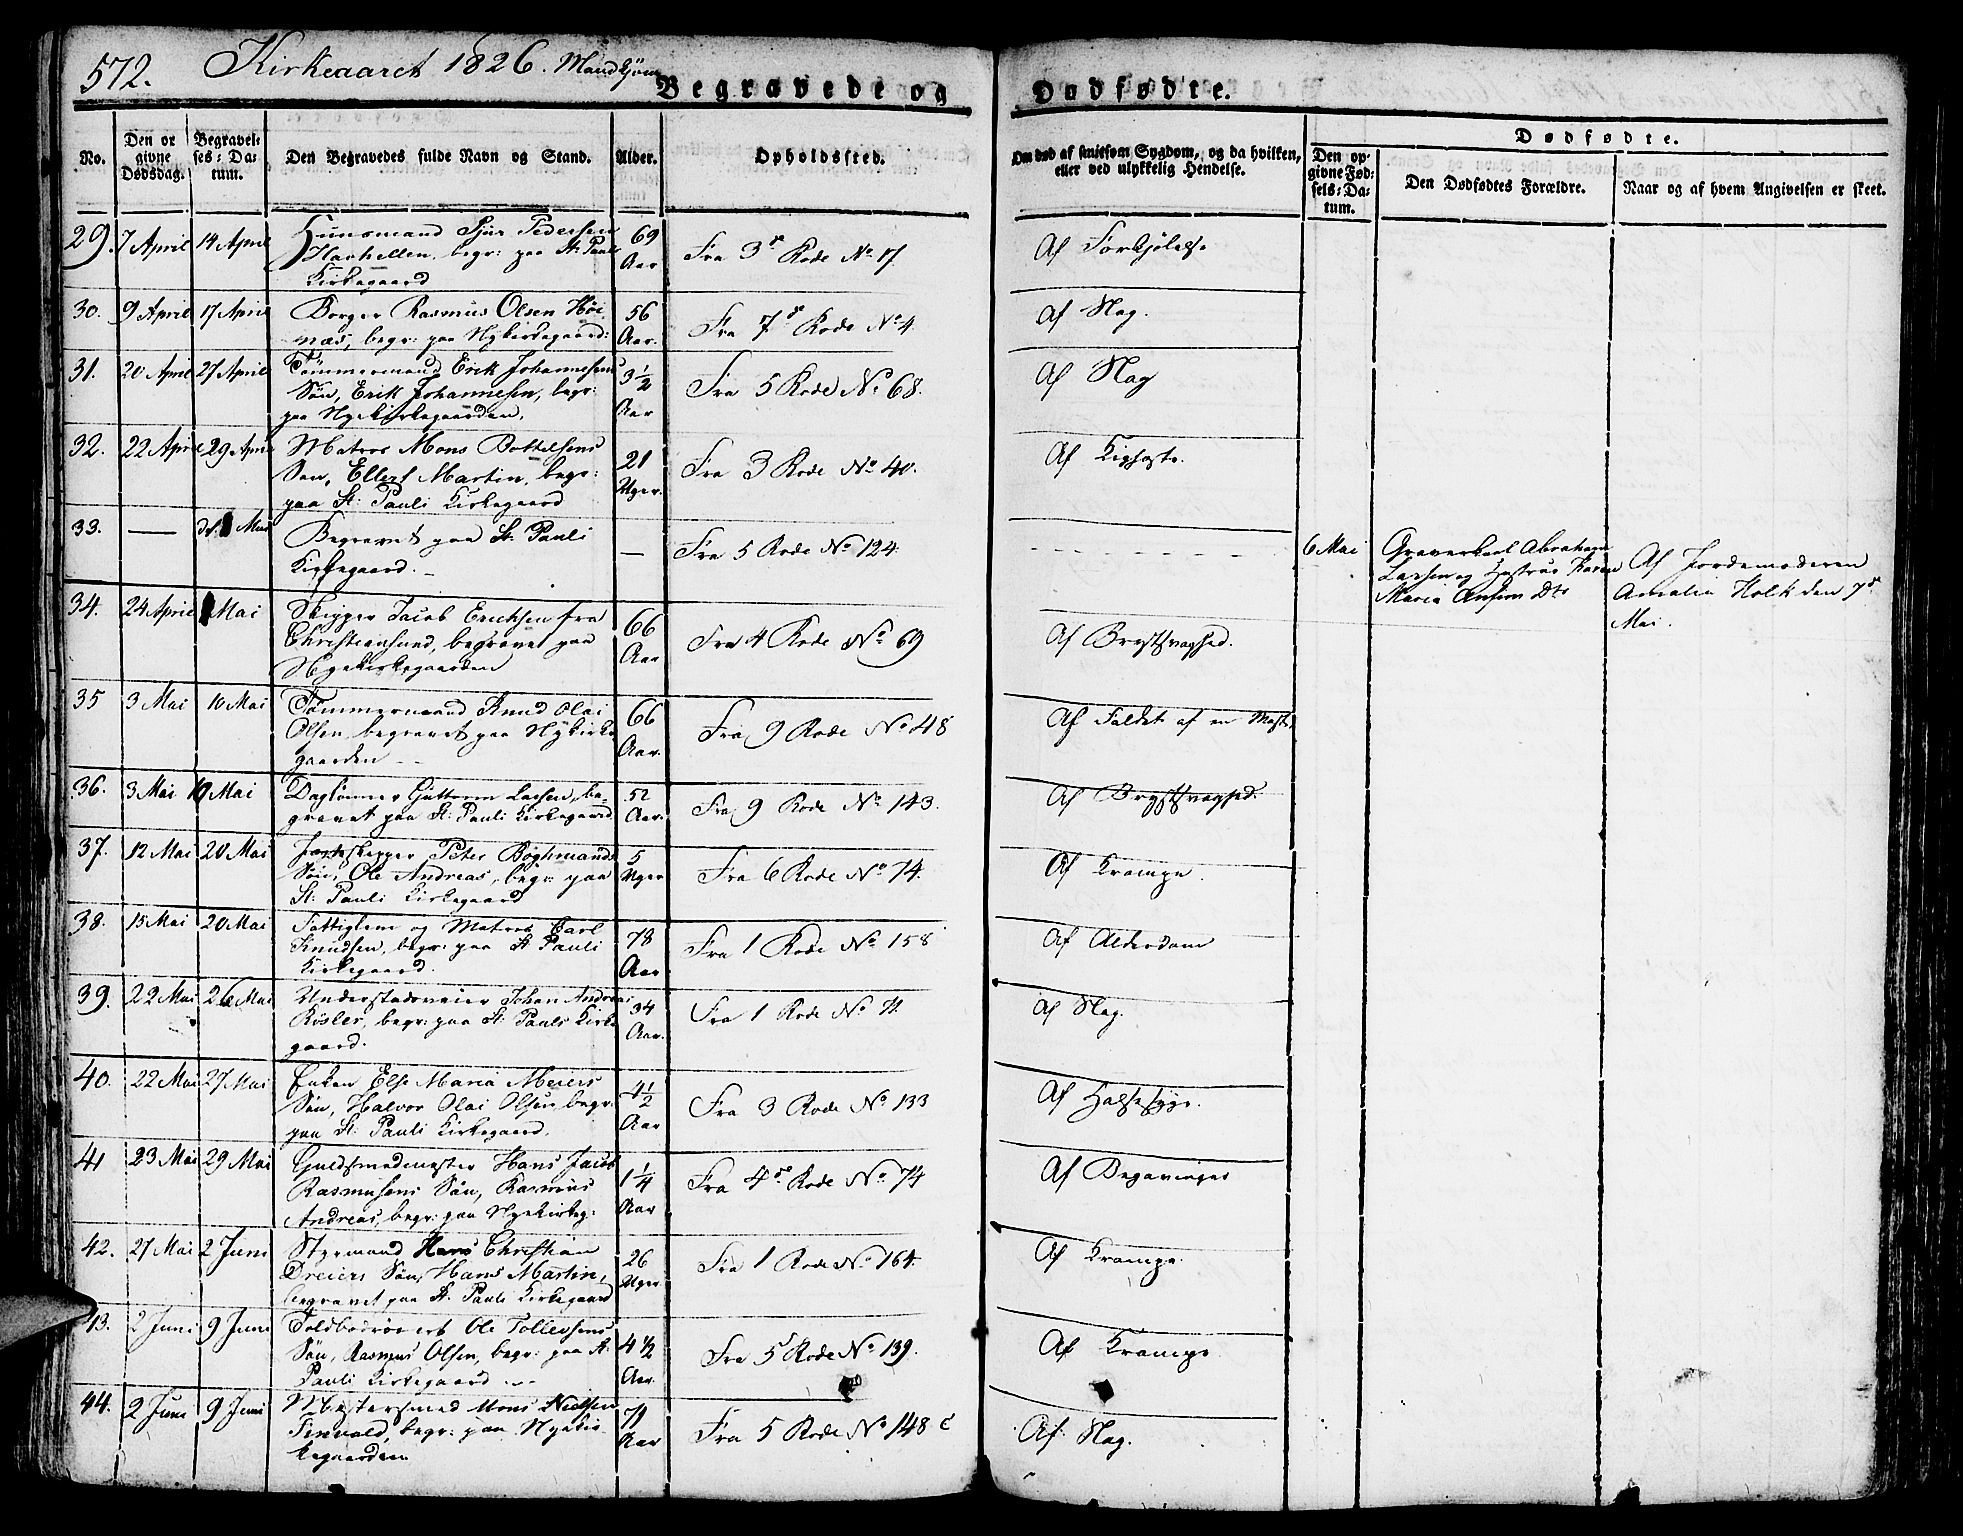 572. Kirkeaaret 1826. Mandkjøn
Begravede og
Dødfødte.
No.
Den opgivne Dødsdag.
Begravelses-Datum.
Den Begravedes fulde Navn og Stand.
Alder.
Opholdssted.
Om død af smitsom Sygdom, og da hvilken,
eller ved ulykkelig Hendelse.
Dødfødte.
Den opgivne Fødsels-Datum.
Den Dødfødtes Forældre.
Naar og af hvem Angivelsen er skeet.
29. 7 April 14 April Huusmand Siur Pedersen 69 Aar Fra 3de Rode No 17. Af Forkjølelse
Havhellen, begr: paa St. Pauli
Kirkegaard
30. 9 April 17 April Borger Rasmus Olsen Høi 56 Aar. Fra 7de Rode No 4. Af Slag.
næs, begr: paa Nykirkegaard:
31. 20 April 27 April Tømmermand Erik Johannesens 3½ Aar Fra 5 Rode No 68. Af Slag
Søn, Erik Johannesen, begr:
paa Nyekirkegaarden.
32. 22 April 29 April Matros Mons Bottelsens 21 Uger. Fra 3 Rode No 40. Af Kighoste.
Søn, Ellert Martin, begr:
paa St: Pauli Kirkegaard
33. — Mai Begravet paa St. Pauli — Fra 5 Rode No 124. 6 Mai Graverkarl Abraham
Kirkegaard. Larsen og Hustrue Karen Af Jordemoderen
Maria Dtr Amalia Holk den 7de
Mai.
34. 24 April Mai Skipper Jacob Ericksen fra 66 Aar Fra 4 Rode No 69 Af Brystsvaghed.
Christiansund, begravet paa
Nyekirkegaarden
35 3 Mai 10 Mai Tømmermand Knud Olai 66 Aar. Fra 9 Rode No 48 Af Faldet af en Mast.
Olsen begravet paa Nykirke
gaarden
36. 3 Mai 10 Mai Daglønner Guttorm Larsen, be 52 Aar. Fra 9 Rode No 143. Af Brystsvaghed.
gravet paa St: Pauli Kirkegaard
37. 12 Mai 20 Mai Peter Böghmands 5 Uger Fra 6 Rode No 74. Af Krampe.
Søn, Ole Andreas, begr: paa
St. Pauli Kirkegaard
38. 15 Mai 20 Mai Fattiglem og Matros Carl 78 Aar Fra 1 Rode No 158 Af Alderdom
Knudsen, begr: paa St Pauli
Kirkegaard.
39. 22 Mai 26 Mai Johan Andreas 34 Aar. Fra 1 Rode No Af Slag.
Rösler, begr: paa St. Pauli Kirke
gaard.
40. 22 Mai 27 Mai Enken Else Maria Meiers 4½ Aar Fra 3 Rode No 133 Af Halsesyge.
Søn, Halvor Olai Olsen begr:
paa St. Pauli Kirkegaard.
41 23 Mai 29 Mai Guldsmedmester Hans Jacob 1¼ Aar Fra 4de Rode No 74 Af Begavinger
Rasmusens Søn, Rasmus
Andreas, begr: paa Nyekirkeg:
42. 27 Mai 2 Juni Styrmand Hans Christian 26 Uger Fra 1 Rode No 164. Af Krampe.
Dreiers Søn, Hans Martin,
begravet paa St. Pauli Kirkegaard
43. 2 Juni 9 Juni Toldbodröert Ole Tollevsens 4½ Aar. Fra 5 Rode No 139. Af Krampe
Søn, Rasmus Olsen, begr: paa St.
Pauli Kirkegaard
44. 2 Juni 9 Juni Mestersmed Mons Nielsen 79 Aar Fra 5 Rode No 148 c Af Slag.
begr: paa Nyekir
kegaarden